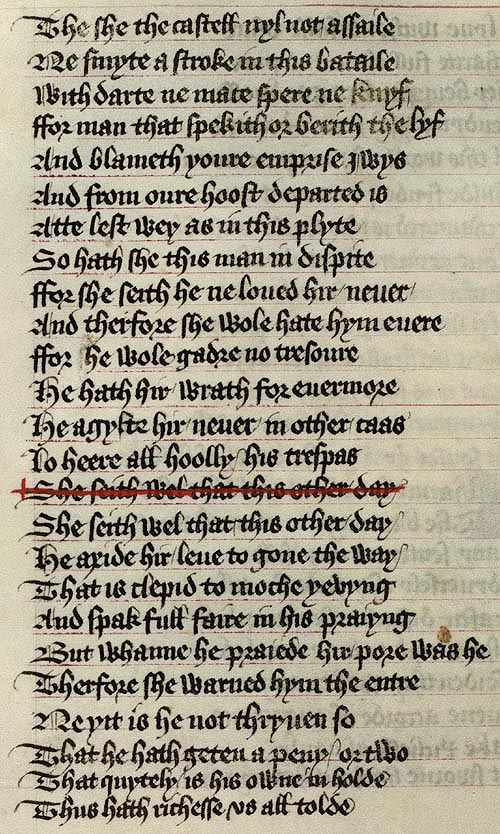 The she the castell nyl not assaile
Ne smyte a stroke in this bataile
With darte ne mace spere ne knyf
ffor man that spekith or berith the lyf
And blameth youre emprise Iwys
And from oure hoost departed is
Atte lest wey as in this plyte
So hath she this man in dispite
ffor she seith he ne loued hir neuer
And therfore she wole hate hym euere
ffor he wole gadre no tresoure
He hath hir wrath for euermore
He agylte hir neuer in other caas
lo heere all hoolly his trespas
She seith wel that this other day
She seith wel that this other day
He axide hir leue to gone the way
That is clepid to moche yevyng
And spak full faire in his praiyng
But whanne he praiede hir pore was he
Therfore she warned hym the entre
Ne yit is he not thryuen so
That he hath geten a peny or two
That quytely is his owne in holde
Thus hath richesse vs all tolde